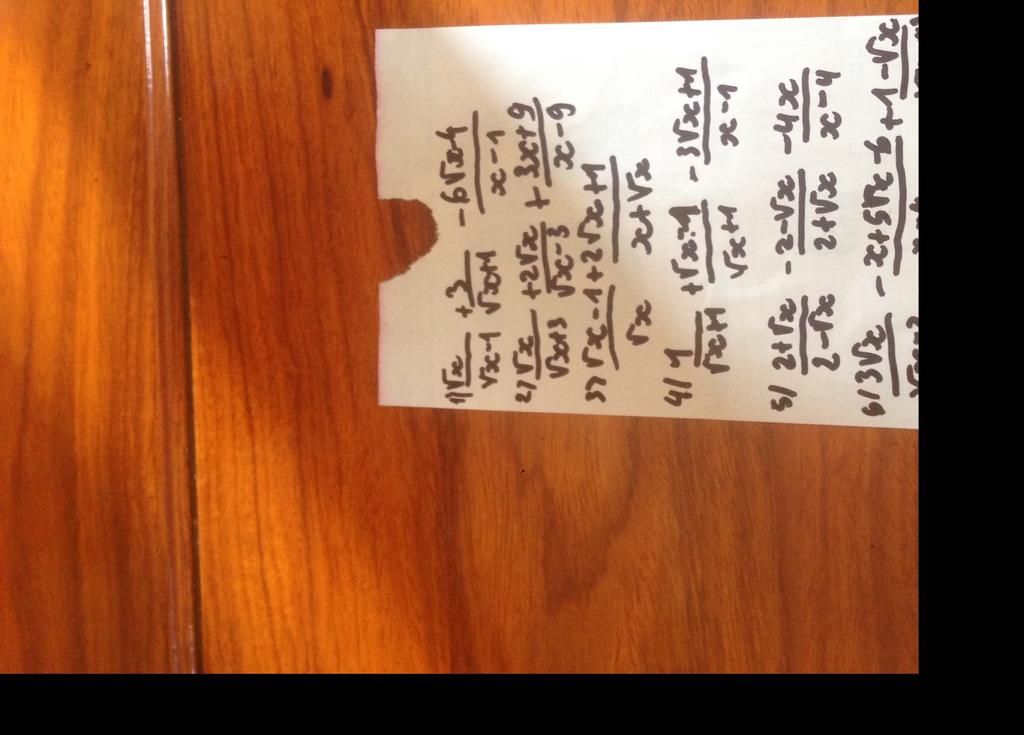 1) √x/(√x-1) + 3/(√x+1) - (6√x-4)/(x-1)
2) √x/(√x+3) + 2√x/(√x-3) + (3x+9)/(x-9)
3) (√x-1)/√x + (2√x+1)/(x+√x)
4/ 1/(√x+1) + (√x-1)/(√x+1) - (3√x+1)/(x-1)
5/ (2+√x)/(2-√x) - (2-√x)/(2+√x) - 4x/(x-4)
6/ 3√x - x+5√x-6 + 1-√x